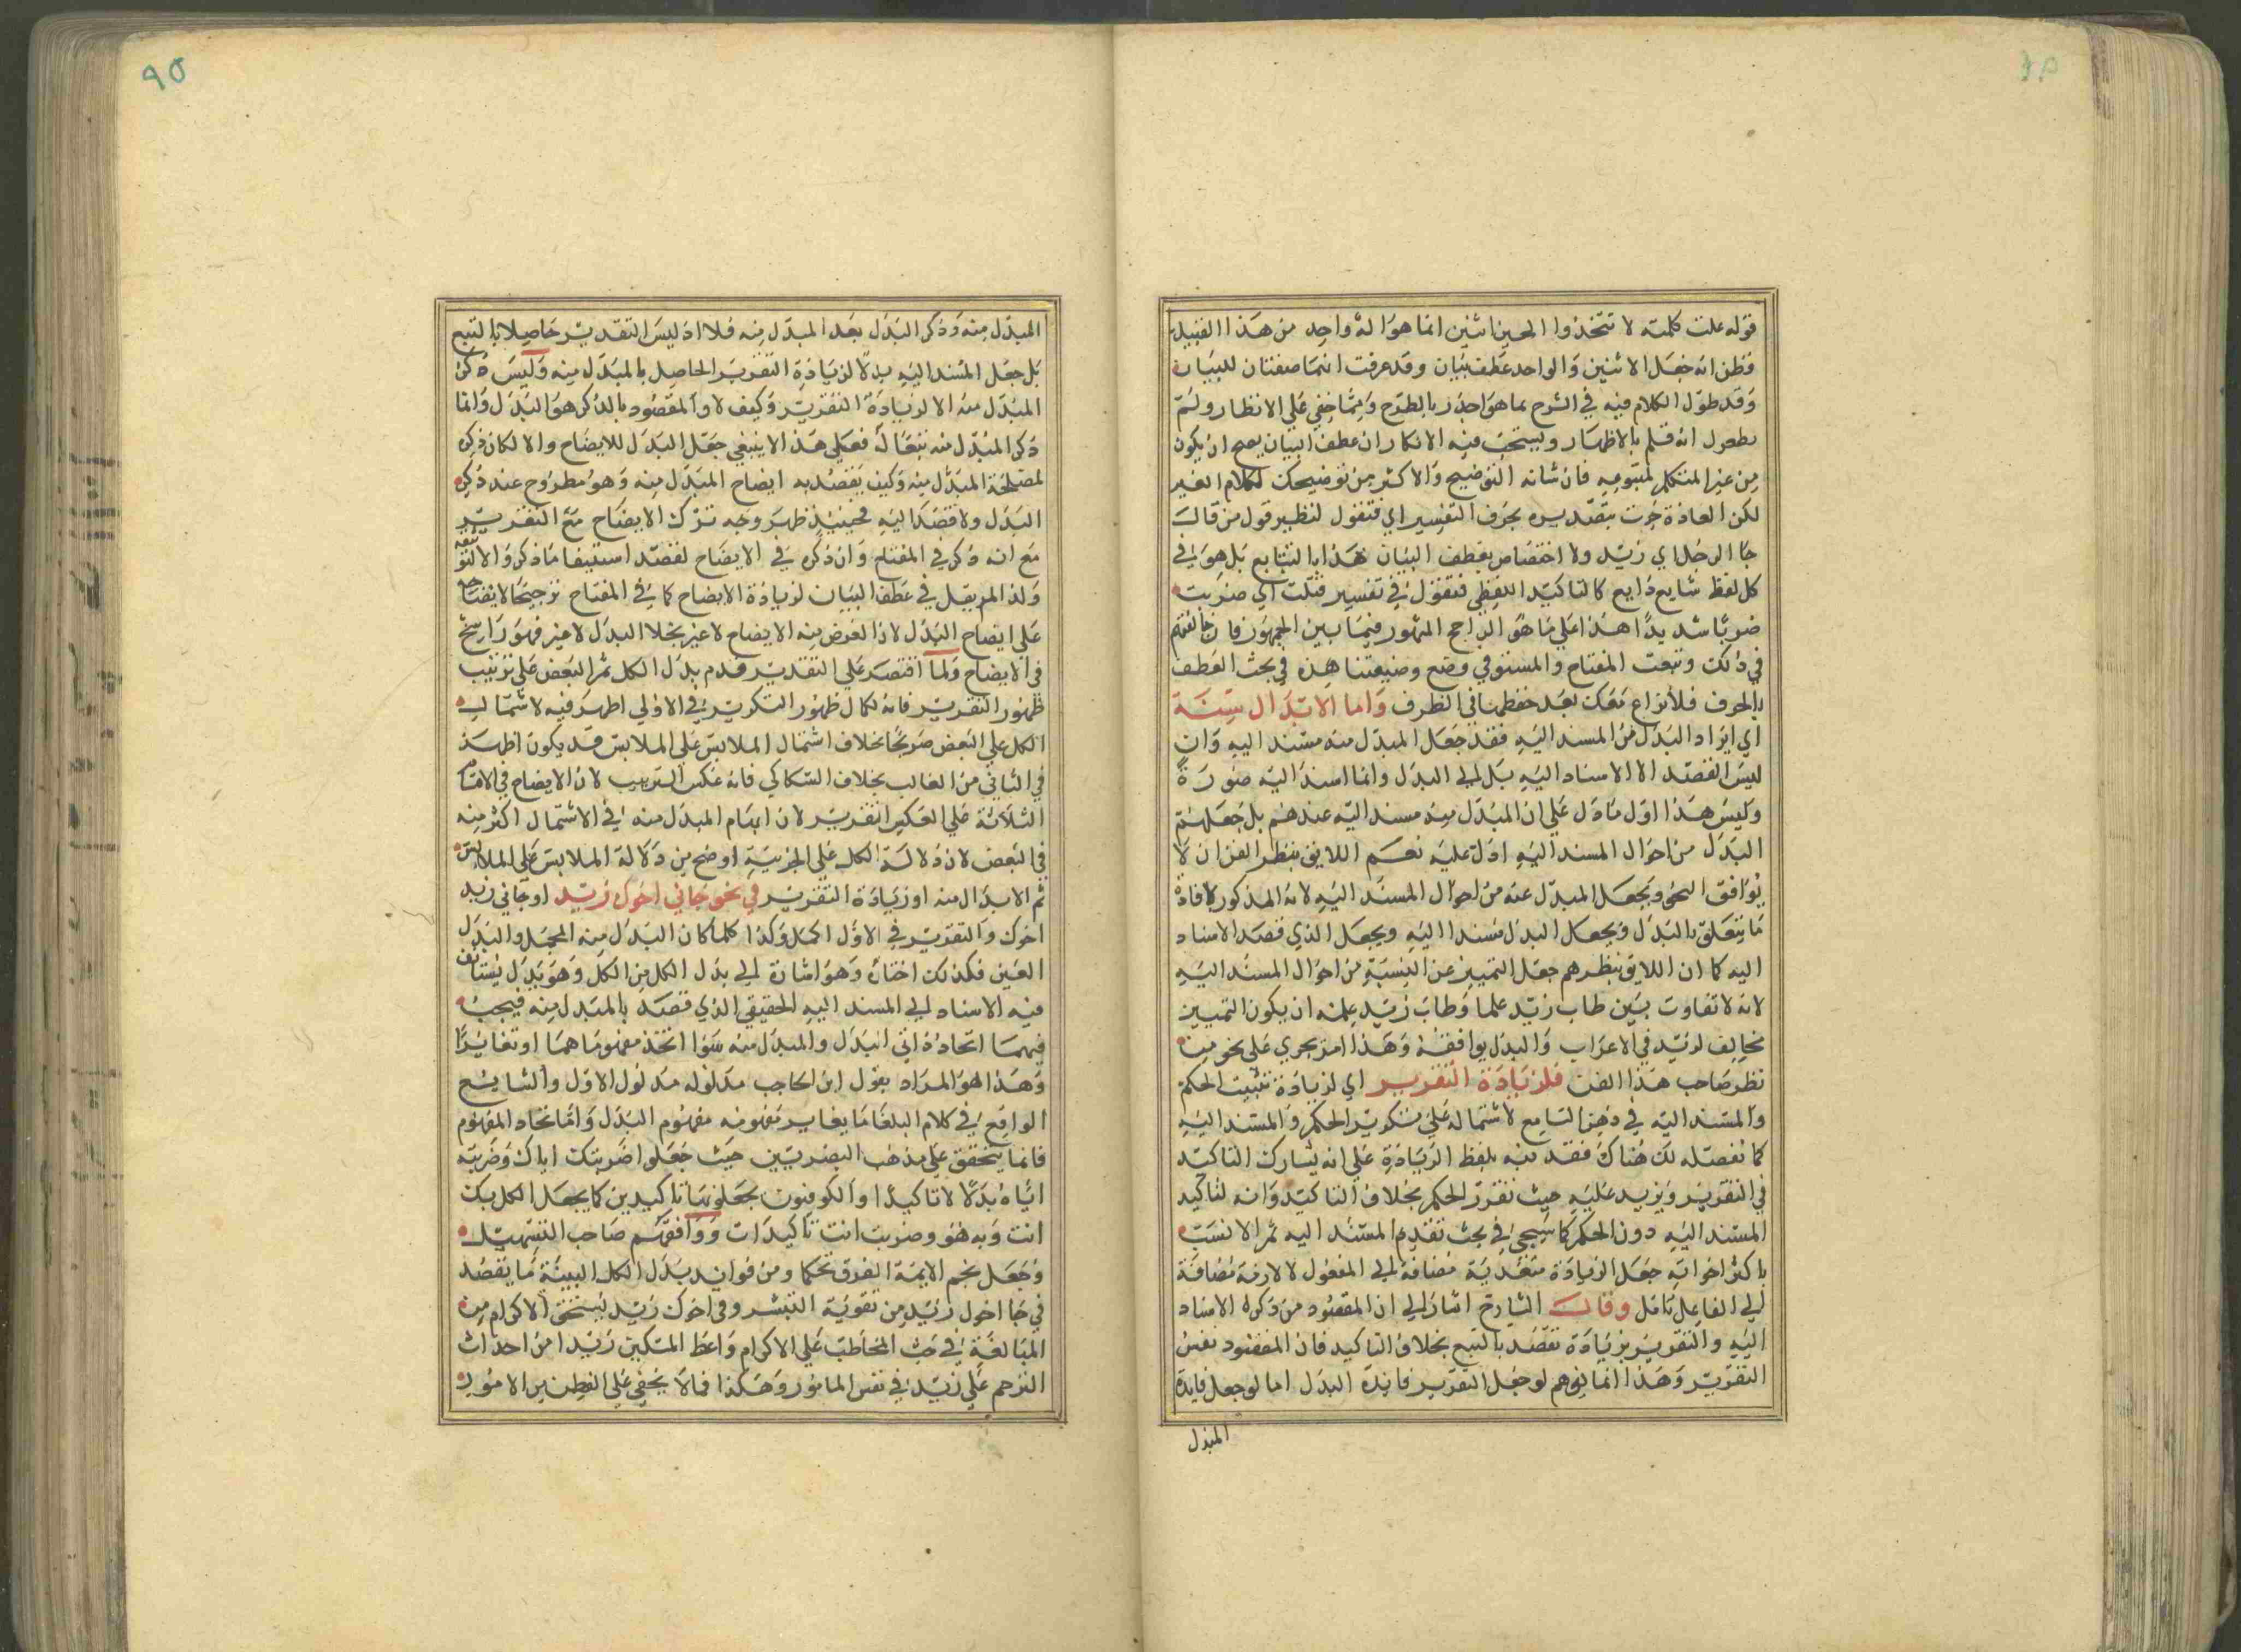 قوله علت كلمته لا تتخذوا الهين اثنين انما هو اله واحد من هذا القبيل
فظن انه جعل الاثنين والواحد عطف بيان وقد عرفت انهما صفتان للبيان
وقد طول الكلام فيه في الشرح بما هو اجدر بالطرح ومما خفي على الانظار ولم
انه قلم بالاظهار ويستحب فيه الانكار ان عطف البيان يصح ان يكون
من غير المتكلم لمتبوعه فان شانه التوضيح والاكثر من توضيحك لكلام الغير
لكن العادة جرت بتصديره بحرف التفسير اي فتقول لتظير قول من قال
جا الرجل اي زيد ولا اختصاص بعطف البيان هذا بالتتابع بل هو في
كل لفظ شايع ذايع كالتاكيد اللفظي فتقول في تفسير قتلت اي ضربت
ضربا شديدا هذا على ما هو الراجح المشهور فيما بين الجمهور فا
في ذلك وتبعت المفتاح والمستوفي وضع وضيعتنا هذه في بحث العطف
بالحرف فلا نزاع معك بعد حفظها في الظرف واما الابدال منه
اي ايراد البدل من المسند اليه فقد جعل المبدل منه مسند اليه وان
ليس القصد الا الاسناد اليه بل الى البدل وانما اسند اليه صورة
وليس هذا اول ما دل على ان المبدل منه مسند اليه عندهم بل جعلهم
البدل من احوال المسند اليه ادل عليه نعم اللايق بنظر الفن ان لا
يوافق النحو ويجعل المبدل عنه من احوال المسند اليه لانه المذكور لافادة
ما يتعلق بالبدل ويجعل البدل مسندا اليه ويجعل الذي قصد الاسناد
اليه كما ان اللايق بنظرهم جعل التمييز عن النسبة من احوال المسند اليه
لانه لا تفاوت بين طاب زيد علما وطاب زيد علمه ان يكون التمييز
مخالف لزيد في الاعراب والبدل يوافقه وهذا امر يجري على نحو من
نظر صاحب هذا الفن فلزيادة التقرير اي لزيادة تثبيت الحكم
والمسند اليه في ذهن السامع لاشتماله على تكوير الحكم والمسند اليه
كما نفصله لك هناك فقد نبه بلفظ الزيادة على انه يشارك التاكيد
في التقرير ويزيد عليه حيث تقرر الحكم بخلاف التاكيد وانه لتاكيد
المسند اليه دون الحكم كما سيجئ في بحث تقديم المسند اليه ثم الانسب
باكثر اخواته جعل الزيادة متعدية مضافة الى المفعول لا لازمة مضافة
الى الفاعل تامل وقال الشارح اشار الى ان المقصود من ذكره الاسناد
اليه والتقرير بزيادة تقصد بالتبع بخلاف التاكيد فان المقصود نفس
التقرير وهذا انما يوهم لو جعل التقرير فايدة البدل اما لو جعل فايدة
المبدل
٩٥
المبدل منه وذكر البدل بعد المبدل منه فلا اذ ليس التقدير حاصلا بالتبع
بل جعل المسند اليه بدلا لزيادة التقرير الحاصل بالمبدل منه وليس ذكر
المبدل منه الا لزيادة التقرير وكيف لا والمقصود بالذكر هو البدل وانما
ذكر المبدل منه تبعا له فعلى هذا لا ينبغي جعل البدل للايضاح والا لكان ذكره
لمصلحة المبدل منه وكيف يقصد به ايضاح المبدل منه وهو مطروح عند ذكر
البدل ولا قصد اليه فحينئذ ظهر وجه ترك الايضاح مع التقرير
مع انه ذكر في المفتاح وان ذكره في الايضاح لقصد استيفا ما ذكروا لا
ولذا لم يقل في عطف البيان لزيادة الايضاح كما في المفتاح ترجيحا لايضاحه
على ايضاح البدل لان الغرض منه الايضاح لا غير بخلا البدل لا غير فهو راسخ
في الايضاح ولما اقتصر على التقدير قدم بدل الكل ثم البعض على ترتيب
ظهور التقرير فانه لكمال ظهور التكوير في الاولى اظهر فيه لاشتمال
الكل على البعض صريحا بخلاف اشتمال الملابس على الملابس قد يكون اظهر
في الثاني من الغالب بخلاف السكاكي فانه عكس الترتيب لان الايضاح في الاقسام
الثلاثة على العكس التقرير لان ابهام المبدل منه في الاشتمال اكثر منه
في البعض لان دلالة الكل على الجزيية اوضح من دلالة الملابس على الملابس
ثم الابدال منه او زيادة التقرير في نحو جاني اخوك زيد او جاني زيد
اخوك والتقرير في الاول اكمل وكذا كلما كان البدل منه المجمل والبدل
العين فكذلك اختاره وهو اشارة الى بدل الكل من الكل وهو بدل يستانف
فيه الاسناد الى المسند اليه الحقيقي الذي قصد بالمبدل منه فيجب
فيهما اتحاد ذاتي البدل والمبدل منه سوا اتخذ مفهوماهما او تغايرا
وهذا هو المراد بقول ابن الحاجب مدلوله مدلول الاول والشايع
الواقع في كلام البلغا ما يغاير مفهومه مفهوم البدل واما اتحاد المفهوم
فانما يتحقق على مذهب البصريين حيث جعلوا ضربتك اياك وضربته
اياه بدلا لا تاكيدا والكوفيون يجعلونها تاكيدين كما يجعل الكل بك
انت وبه هو وضربت انت تاكيدات ووافقهم صاحب التسهيل
وجعل نجم الايمة الفرق تحكما ومن فوايد بدل الكل البينة ما يقصد
في جا اخوك زيد من تقوية التبشر وفي اخوك زيد يستحق الاكرام من
المبالغة في حث المخاطب على الاكرام واعط المسكين زيدا من احداث
الترحم على زيد في نفس المامور وهكذا فمالا يخفى على الفطن من الامور